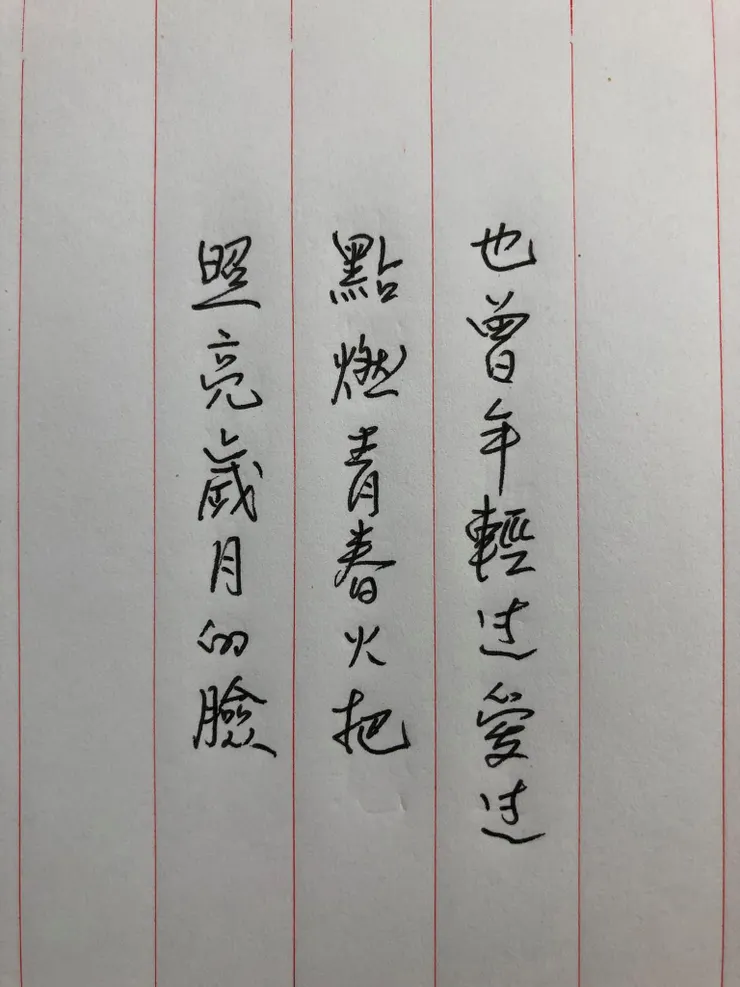 也曾年輕过愛过
點燃青春火把
照亮歲月的臉